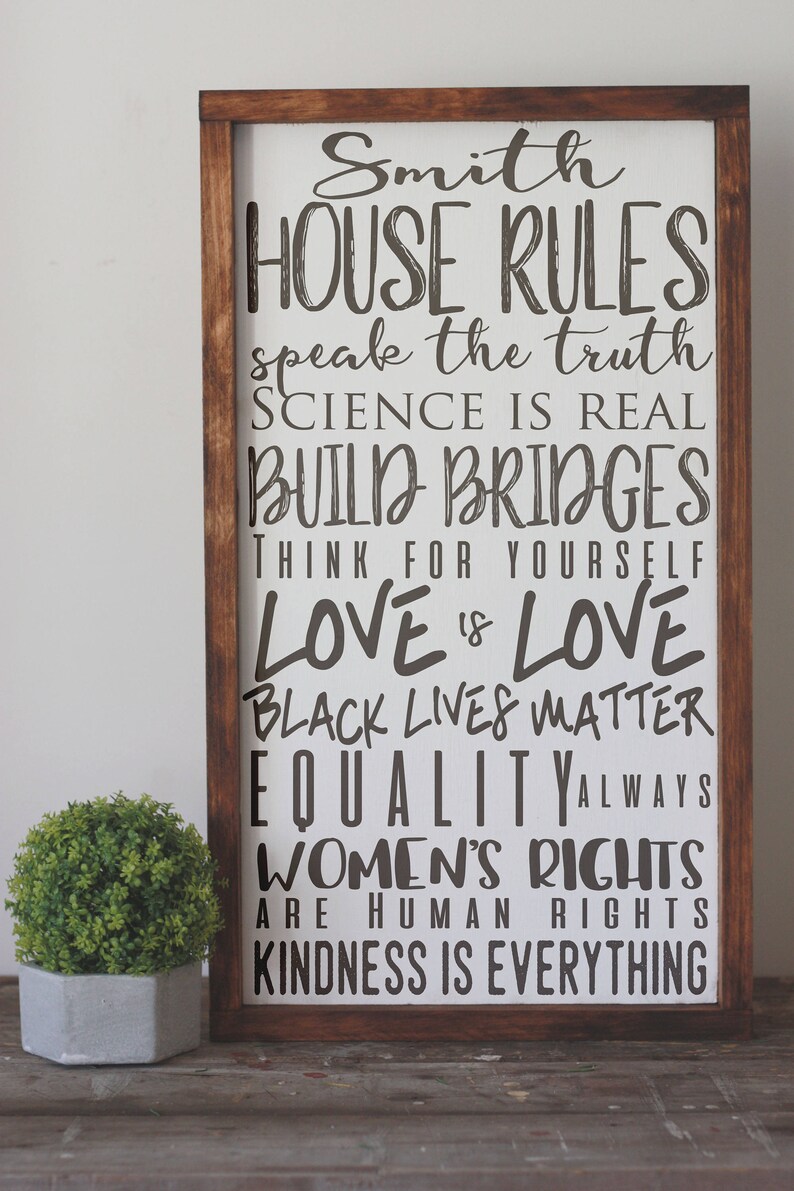 Smith
HOUSE RULES
speak the truth
SCIENCE IS REAL
BUILD BRIDGES
THINK FOR YOURSELF
LOVE is LOVE
BLACK LIVES MATTER
EQUALITY ALWAYS
WOMEN'S RIGHTS
ARE HUMAN RIGHTS
KINDNESS IS EVERYTHING